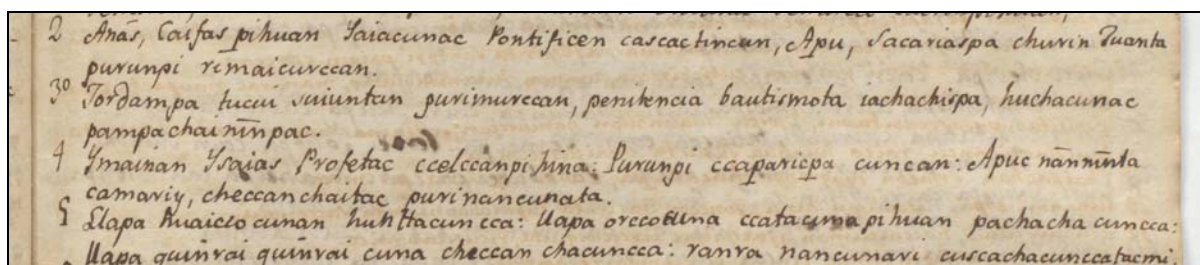 2 Anàs, Caifas pihuan Saiacunac Pontificen cascactincun, Apu, Sacariaspa churin Juanta
purunpi rimaicurccan.
3º Jordampa tucui suiuntan purimurccan, penitencia bautismota iachachispa, huchacunac
pampachaininpac.
4 Ymainan Ysaias Profetac ccelccanpi hina: Purunpi ccaparicpa cuncan: Apuc ñanninta
camariy, checcanchaitac purinancunata.
5 Llapa huaicco cunan hunttacuncca: llapa orcco cuna ccata pihuan pachacha cuncca:
llapa quinrai quinrai cuna checcan chacuncca: ranra ñancunari cuscachacunccatacmi.